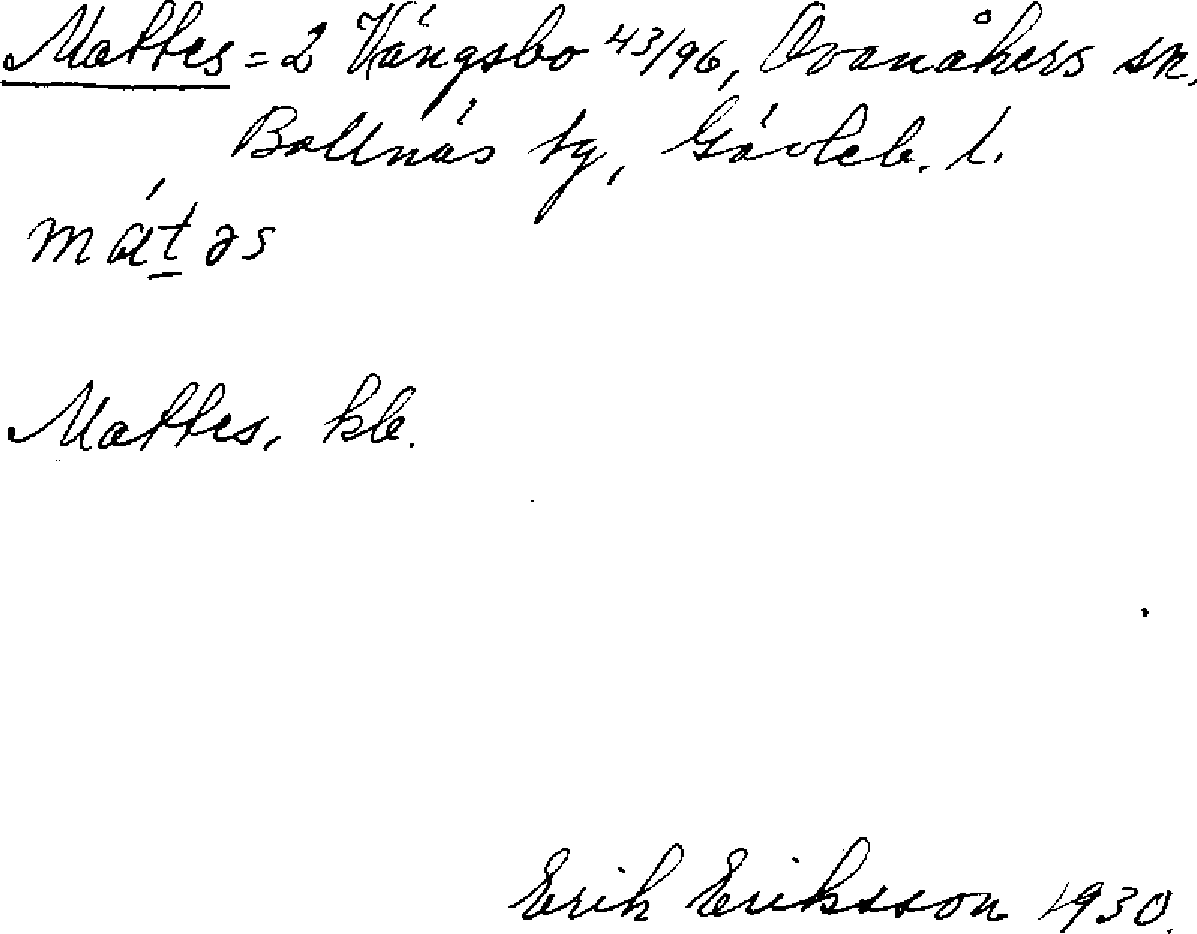 Mattes = 2 Vängsbo 43/96, Ovanåkers sn,
Bollnäs tg, Gävleb. l.
mát̲əs
Mattes, kb.
Erik Eriksson 1930.